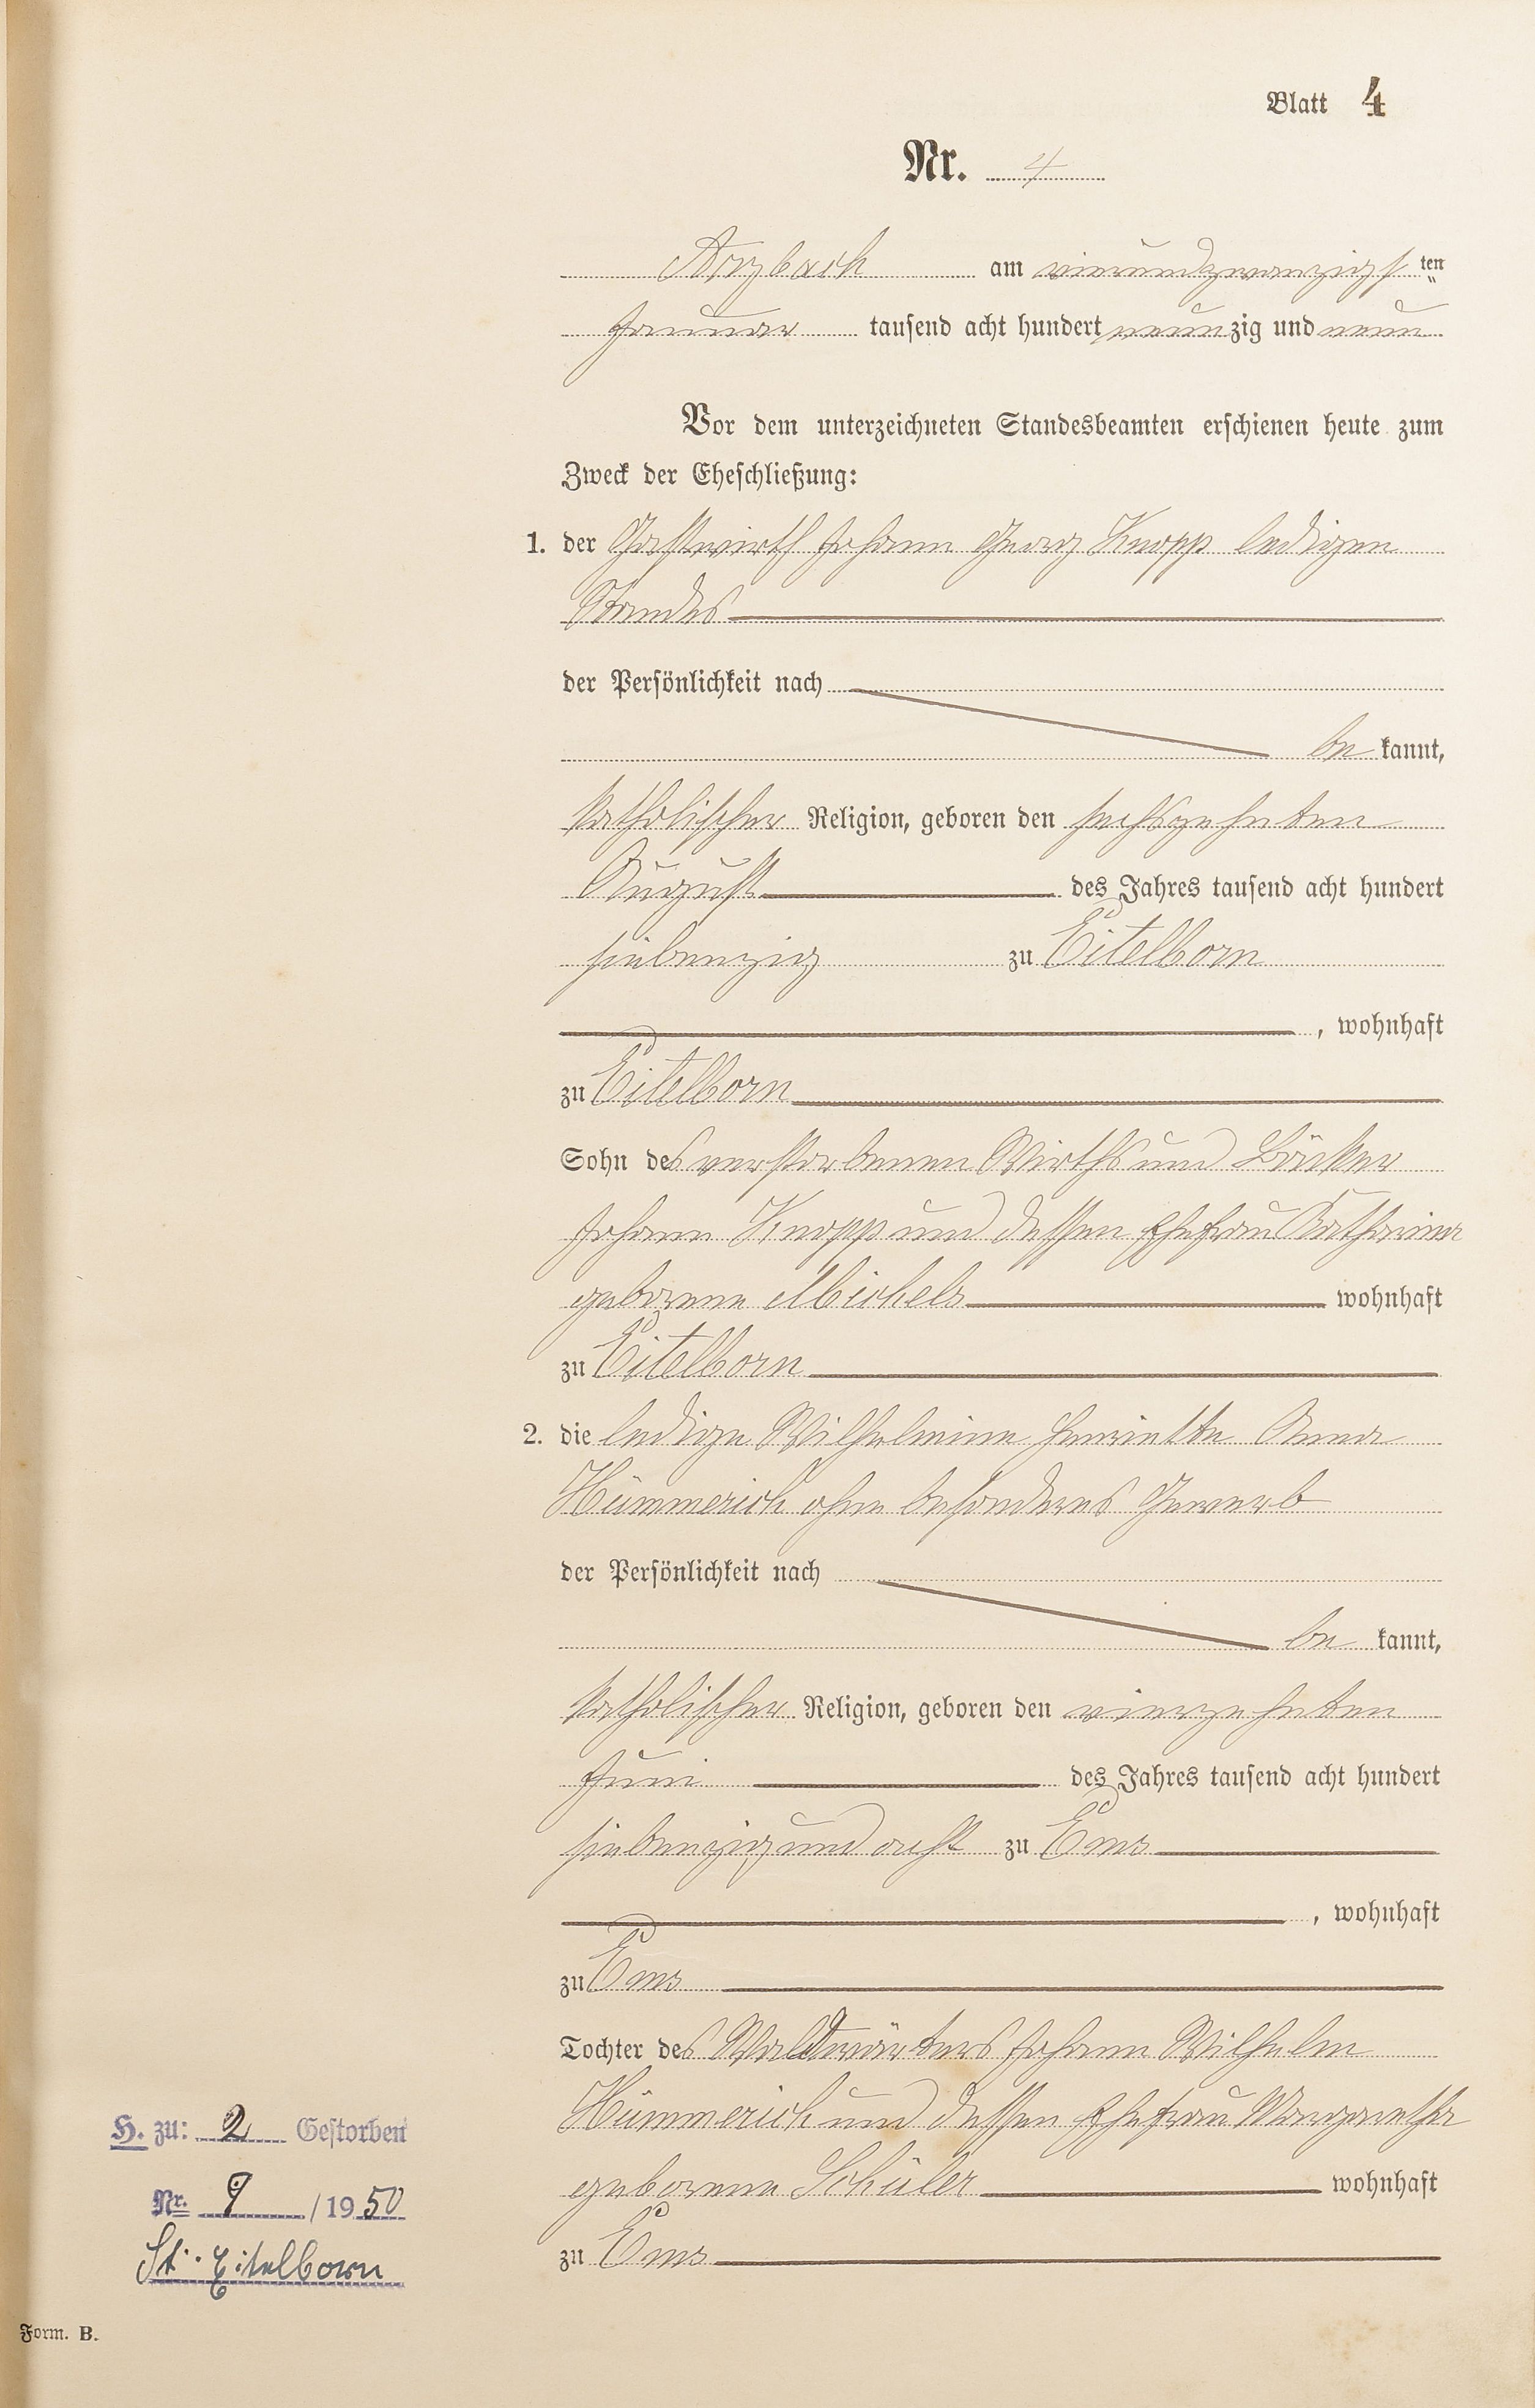 Blatt 4
Nr. 4
Arzbach am vierundzwanzigsten
Januar tausend acht hundert neunzig und neun
Vor dem unterzeichneten Standesbeamten erschienen heute zum
Zweck der Eheschließung:
1. der Gastwirth Johann Georg Knopp ledigen
Standes
der Persönlichkeit nach
be kannt,
katholischer Religion, geboren den sechszehnten
August des Jahres tausend acht hundert
siebenzig zu Eitelborn
, wohnhaft
zu Eitelborn
Sohn des verstorbenen Wirths und Bäcker
Johann Knopp und dessen Ehefrau Katharina
geborene Michels wohnhaft
zu Eitelborn
2. die ledige Wilhelmine Henriette Anna
Hümmerich ohne besonderes Gewerb
der Persönlichkeit nach
be kannt,
katholischer Religion, geboren den vierzehnten
Juni des Jahres tausend acht hundert
siebenzig und acht zu Ems
, wohnhaft
zu Ems
Tochter des Waldwärters Johann Wilhelm
Hümmerich und dessen Ehefrau Margaretha
geborene Schüler wohnhaft
zu Ems
H. zu: 2 Gestorben
Nr. 9 / 1950
St. Eitelborn
Form. B.